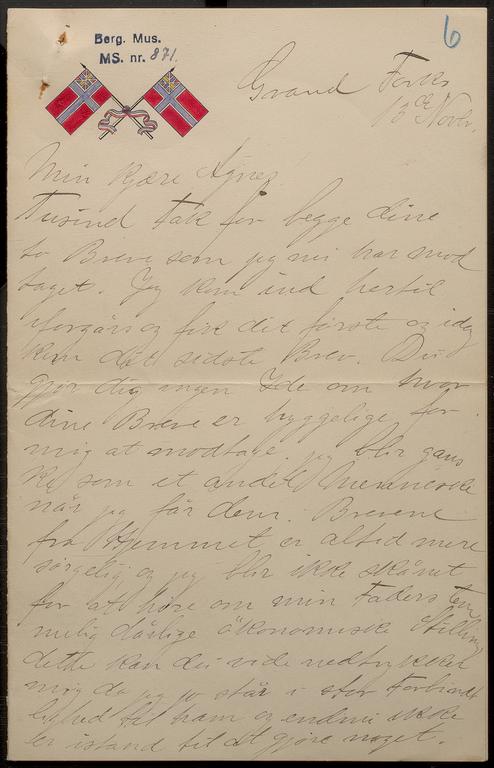 6
Berg. Mus.
MS. nr. 871.
Grand Forks
13de Novbr.
Min kjære Agnes
Tusind Tak for begge dine
to Breve som jeg nu har mod
taget. Jeg kom ind hertil
iforgårs og fik det første og idag
kom dit sidste Brev. Du
gjør dig ingen Ide om hvor
dine Breve er hyggelige for
mig at modtage. jeg blir gans
ke som et andet Menneske
når jeg får dem. Brevene
fra Hjemmet er altid mere
sørgelig og jeg blir ikke skånet
for at høre om min Faders tem
melig dårlige økonomiske Stilling
dette kan du vide nedtrykker
mig da jeg jo står i stor Forbindt
lighed til ham og endnu ikke
er istand til at gjøre noget.